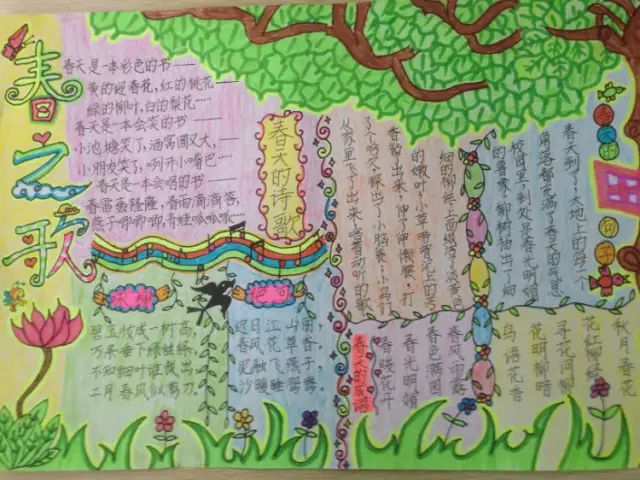 春之歌
春天是一本彩色的书——
黄的迎春花,红的桃花——
绿的柳叶,白的梨花……
春天是一本会笑的书——
小池塘笑了,酒窝圆又大,——
小朋友笑了,咧开小嘴巴……
春天是一本会唱的书——
春雷轰隆隆,春雨滴滴答,
燕子唧唧唧,青蛙呱呱呱……
春天的诗歌
春天到了,大地上的每一个
角落都充满了春天的气息
校园里,到处是春光明媚
的景象,柳树抽出了细
细的柳丝,上面缀
的嫩叶,小草带
春苗
从家里飞了出来,唱着动听的歌
碧玉妆成一树高,
万条垂下绿丝绦。
不知细叶谁裁出,
二月春风似剪刀。
迟日江山丽
春风花草香
泥融飞燕子
沙暖睡鸳鸯。
春天的成语
春暖花开
春光明媚
春色满园
鸟语花香
花明柳暗
寻花问柳
花红柳绿
秋月春花